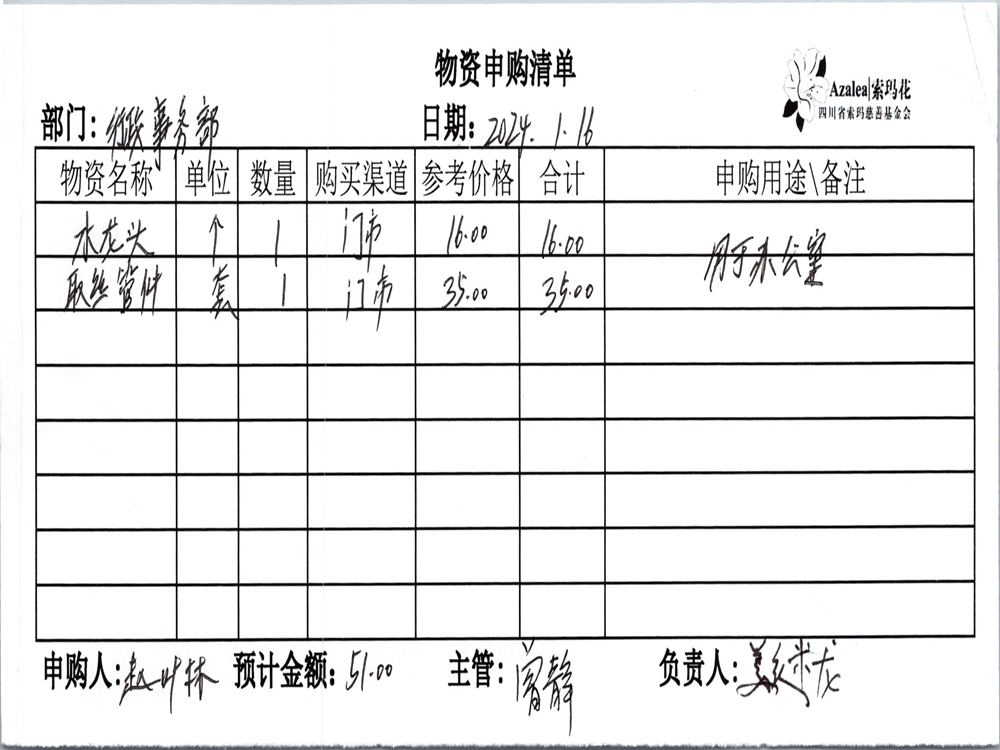 物资申购清单
Azalea|索玛花
四川省索玛慈善基金会
部门：行政事务部 日期：2024.1.16
物资名称 单位 数量 购买渠道 参考价格 合计 申购用途\备注
水龙头 个 1 门市 16.00 16.00 用于办公室
取丝管件 套 1 门市 35.00 35.00
申购人：赵叶林 预计金额：51.00 主管：曾静 负责人：